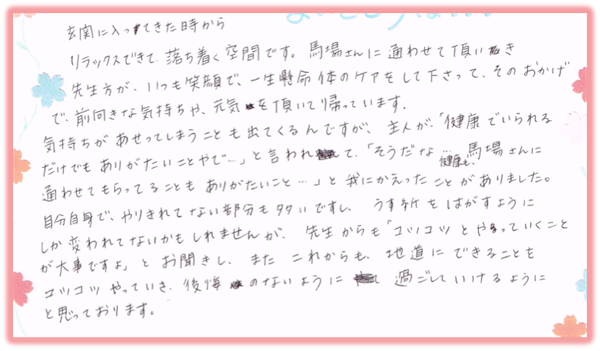 玄関に入ってきた時から
リラックスできて、落ち着く空間です。馬場さんに通わせて頂き
先生方が、いつも笑顔で、一生懸命体のケアをして下さって、そのおかげ
で、前向きな気持ちや、元気を頂いて帰っています。
気持ちがあせってしまうことも出てくるんですが、主人が、「健康でいられる
だけでもありがたいことやで…」と言われて、「そうだな…健康も、馬場さんに
通わせてもらってることもありがたいこと…」と我にかえったことがありました。
自分自身で、やりきれてない部分も多いですし、うす紙をはがすように
しか変われてないかもしれませんが、先生からも「コツコツとやっていくこと
が大事ですよ」とお聞きし、またこれからも、地道にできることも
コツコツやっていき、後悔のないように過ごしていけるように
と思っております。